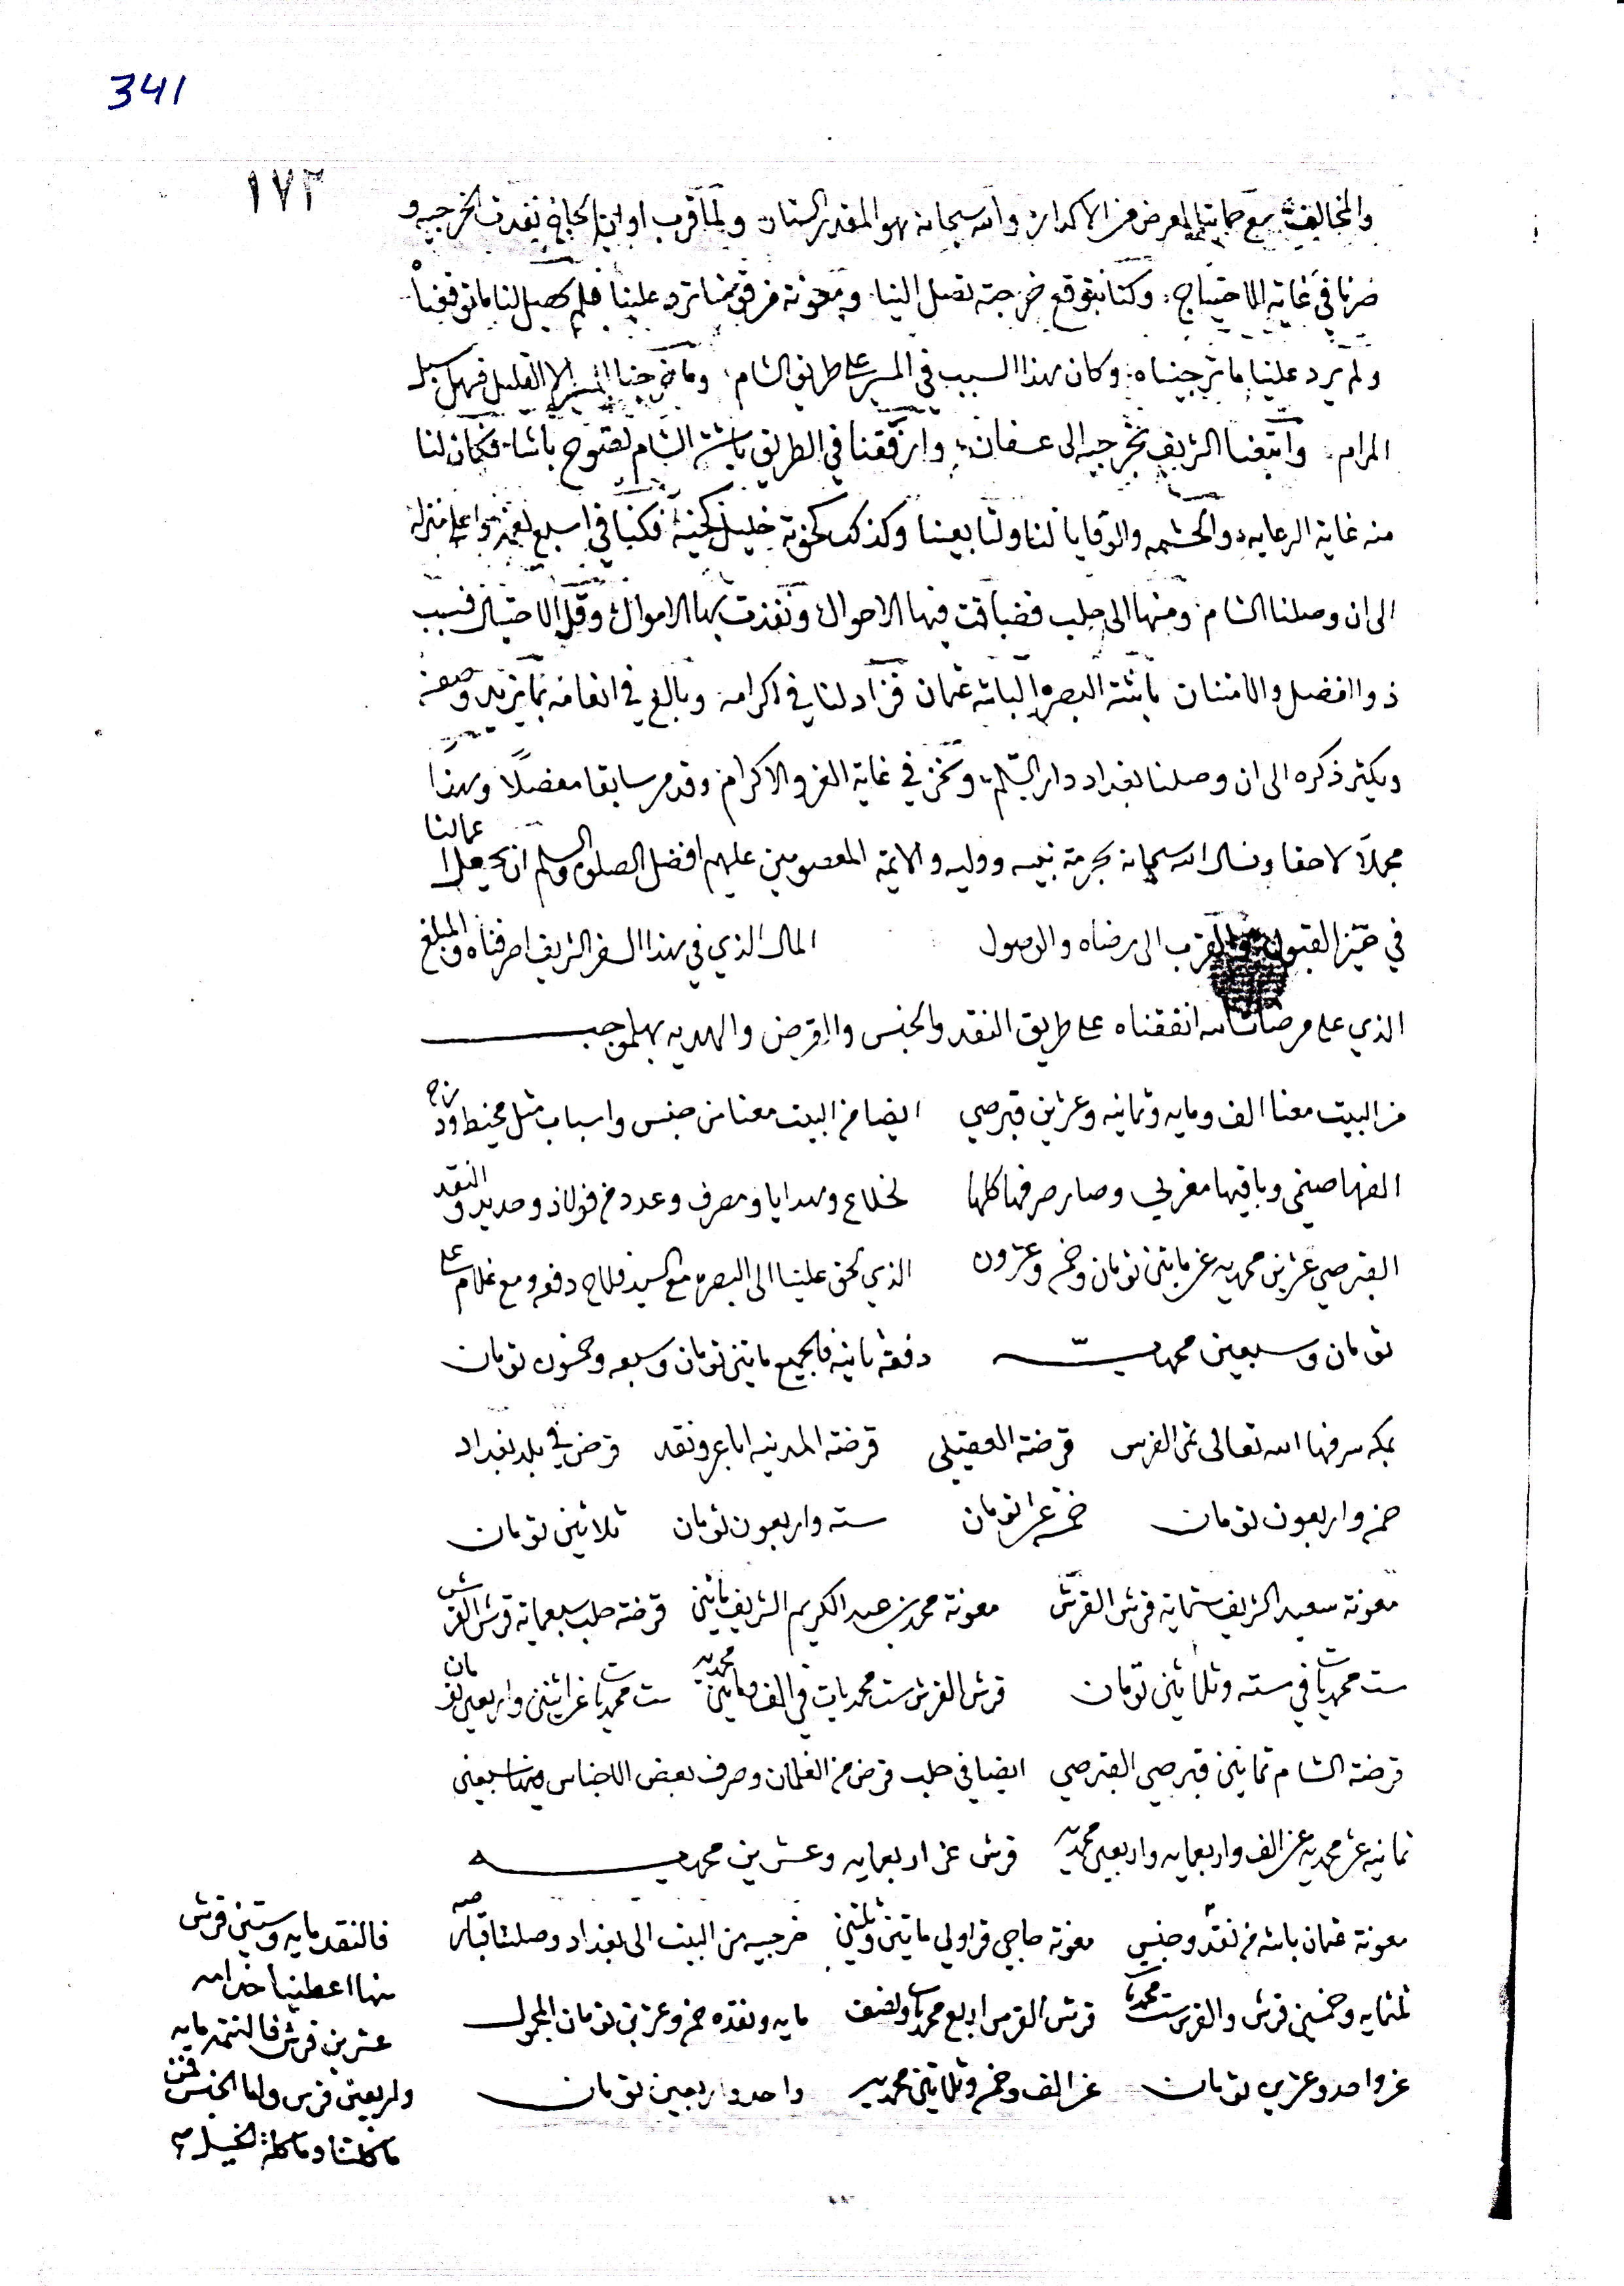 341
١٧٢
والمخالف مع حمايتنا لعرض من الاكدار والله سبحانه هو المقدر الستار ولما قرب اوان الحاج نفدت الخرجيه و
صرنا في غاية الاحتياج وكنا نتوقع خرجية تصل الينا ومعونة من قومنا ترد علينا فلم يحصل لنا ما توقعنا
ولم يرد علينا ما ترجيناه وكان هذا السبب في المسير على طريق الشام وما الا القليل
المرام واتبعنا الشريف بخرجيه الى عسفان وارتفقنا في الطريق باشة الشام باشا فكان لنا
منه غاية الرعايه والحشمه والوقايا لنا ولتابعينا وكذلك خليل فكنا في اسبغ نعمة واعلى منزله
الى ان وصلنا الشام ومنها الى حلب فضاقت فيها الاحوال ونفذت بها الاموال وقل الاحتيال فسبب
ذو الفضل والامتنان باشة البصره الباشه عثمان فزاد لنا في اكرامه وبالغ في انعامه بما يزيد وصفه
ويكثر ذكره الى ان وصلنا بغداد دار السلم ونحن في غاية العز والاكرام وقد مر سابقا مفصلًا وهذا
مجملًا لاحقا ونسال الله سبحانه بحرمة نبيه ووليه والايمة المعصومين عليهم افضل الصلوة والسلم ان يجعل اعمالنا
في حيز القبول والقرب الى رضاه والوصول المال الذي في هذا السفر الشريف اصرفناه والمبلغ
الذي على مرضات الله انفقناه على طريق النقد والجنس والقرض والهديه بهلموجب
من البيت معنا الف ومايه وثمانيه وعشرين قبرصي ايضا من البيت معنا من جنس واسباب مثل مخيط
الفها صيني وباقيها مغربي وصار صرفها كلها لخلاع وهدايا ومصرف وعدد من فولاذ وحديد والنقد
القبرصي عشرين محمديه عن مايتين تومان وخمسه وعشرون الذي لحق علينا الى البصره مع السيد فلاح دفعه ومع غلام علي
تومان وسبعين محمديه دفعة ثانيه فالجميع مايتين تومان وسبعه وخمسون تومان
بمكه شرفها الله تعالى ثمن الفرس قرضة العقيلي قرضة المدينه اباعر ونقد قرض في بلد بغداد
خمسه واربعون تومان خمسة عشر تومان سته واربعون تومان ثلاثين تومان
معونة سعيد الشريف ستماية قرش القرش معونة محمد بن عبد الكريم الشريف مايتين قرضة حلب سبعماية قرش القرش
ست محمديات في سته وثلاثين تومان قرش القرش ست محمديات في الف ومايتين محمديه ست محمديات عن اثنين واربعين تومان
قرضة الشام ثمانين قبرصي القبرصي ايضا في حلب قرض من الغلمان وصرف بعض الاجناس سبعين
ثمانيه عشر محمديه عن الف واربعمايه واربعين محمديه قرش عن اربعمايه وعشرين محمديه
معونة عثمان باشه من نقد وجنس معونة حاجي قراولي مايتين وثلثين خرجيه من البيت الى بغداد وصلتنا
ثلثمايه وخمسين قرش والقرش ست محمديات قرش القرش اربع محمديات ونصف مايه ونقده خمسه وعشرين تومان المجمول
عن واحد وعشرين تومان عن الف وخمسه وثلاثين محمديه واحد واربعين تومان
فالنقد مايه وستين قرش
منها اعطينا خدامه
عشرين قرش فالتتمه مايه
واربعين قرش واما الجنس فمن
ماكلنا وماكلة الخيل